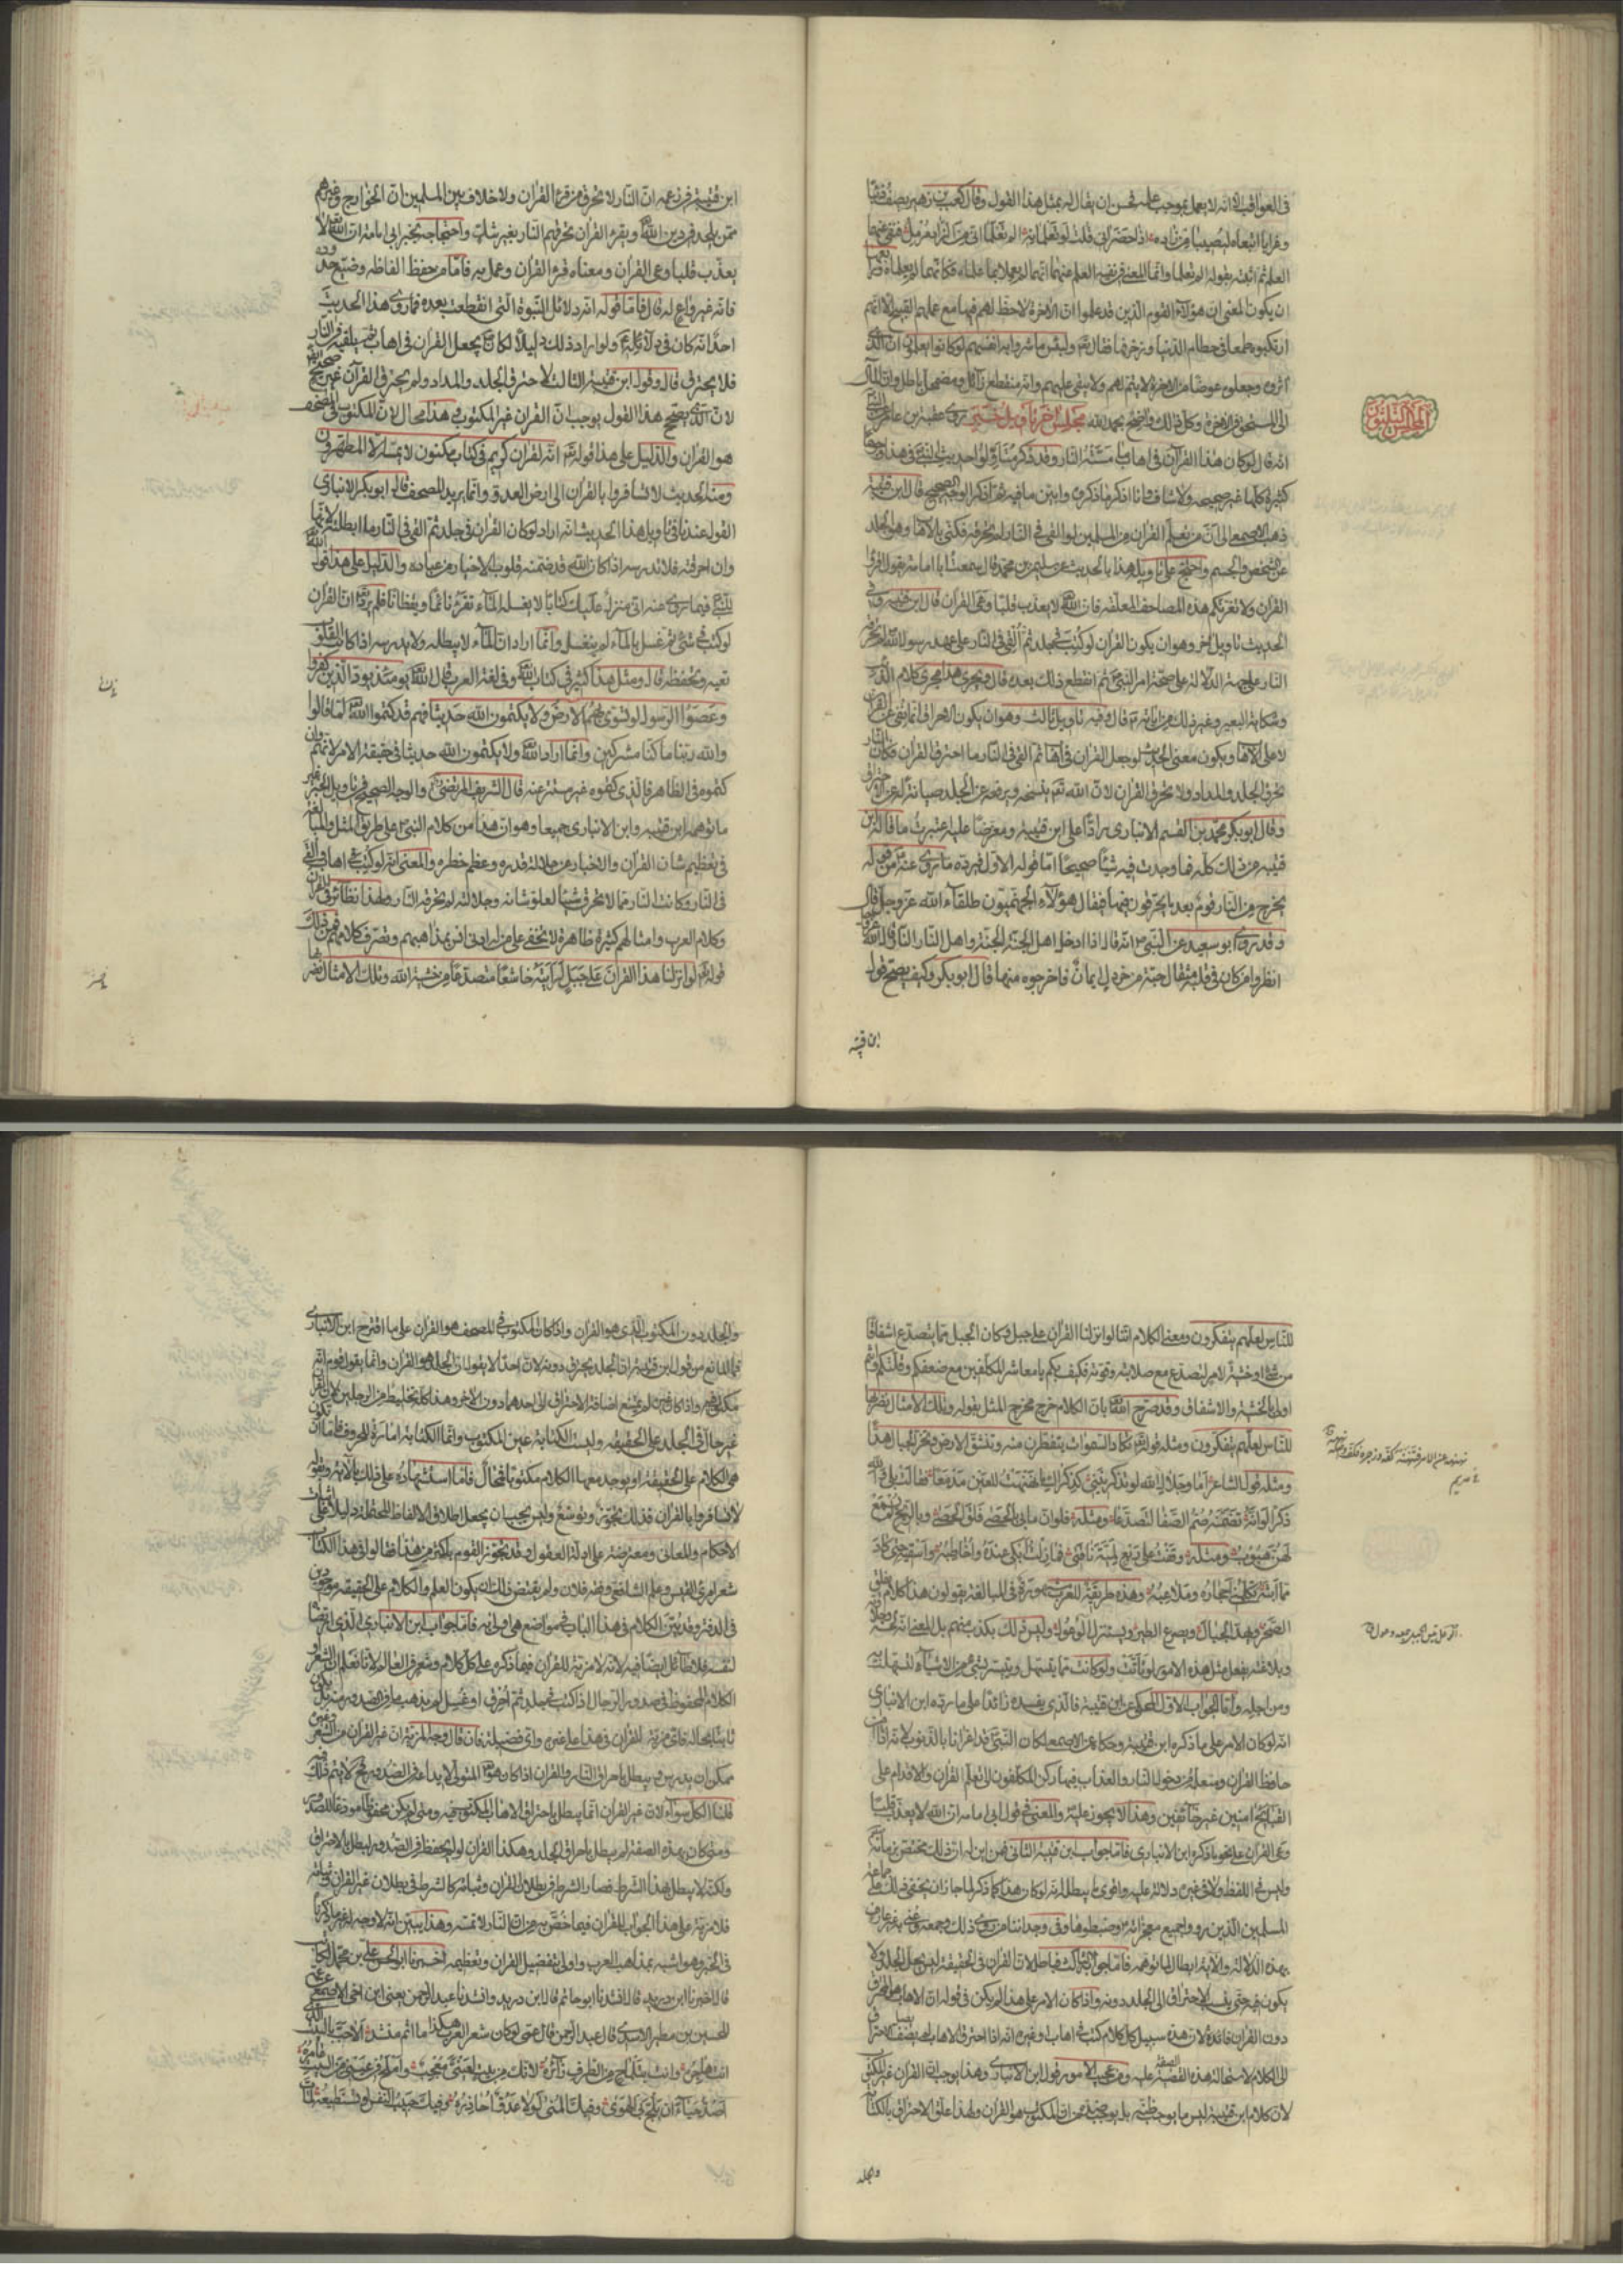 في العواقب لانه لا يعمل بموجب علمه فحسن ان يقال له بمثل هذا القول وقال كعب بن زهير يصف ذئبا
وغرابا اتبعاه ليصيبا من زاده اذا حضراني قلت لو تعلمانه الم تعلما اني من الزاد مرمل فنفى عنهما
العلم ثم اثبته بقوله الم تعلما وانما المعنى في نفيه العلم عنهما انهما لم يعملا بما علماه فكانهما لم يعلماه
ان يكون المعنى ان هؤلاء القوم الذين قد علموا ان الاخرة لا حظ لهم فيها مع عملهم القبيح الا انهم
ارتكبوه طمعا في حطام الدنيا وزخرفها فقال تع ولبئس ما شروا به انفسهم لو كانوا يعلمون ان الذي
آثروه وجعلوه عوضا من الاخرة لا يتم لهم ولا يبقى عليهم وانه منقطع زائل ومضمحل باطل وان المآل
الى المستحق في الاخرة وكل ذلك واضح بحمد الله مجلس اخر تأويل خبر روى عقبة بن عامر
انه قال لو كان هذا القرآن في اهاب ما مسته النار وقد ذكر متأولوا حديث النبي في هذا وجوها
كثيرة كلها غير صحيحة ولا شاف وانا اذكر ما ذكروه وابين ما فيه ثم اذكر الوجه الصحيح قال ابن قتيبة
ذهب الاصمعي الى ان من تعلم القران من المسلمين لو القي في النار لم تحرقه فكنى بالاهاب وهو الجلد
عن الشخص والجسم واحتج على تأويله هذا بالحديث عن سليمن بن محمد قال سمعت ابا امامة يقول اقرؤا
القران ولا تغرنكم هذه المصاحف المعلقة فان الله لا يعذب قلبا وعى القران قال ابن قتيبة وفي
الحديث تاويل اخر وهو ان يكون القران لو كتب في جلد ثم ألقي في النار على عهد رسول الله لم تحرقه
النار على جهة الدلالة على صحة امر النبي ثم انقطع ذلك بعده قال وجرى هذا مجرى كلام الذئب
وشكاية البعير وغير ذلك من اياته ع قال وفيه تاويل ثالث وهو ان يكون الاحراق انما نفي عن القران
لا على الاهاب ويكون معنى الحديث لو جعل القران في اهاب ثم القي في النار ما احترق القران فكان النار
تحرق الجلد والمداد ولا تحرق القران لان الله تع ينسخه ويرفعه عن الجلد صيانة له عن الاحتراق
وقال ابو بكر محمد بن القسم الانباري رادا على ابن قتيبة ومعترضا عليه اعتبرت ما قاله ابن
قتيبة من ذلك كله فما وجدت فيه شيئا صحيحا اما قوله الاول فيرده ما روي عنه من قوله
يخرج من النار قوم بعد ما يحترقون فيها فيقال هؤلاء الجهنميون طلقاء الله عز وجل قال
وقد روى ابو سعيد عن النبي انه قال اذا ادخل اهل الجنة الجنة واهل النار النار قال الله
انظروا من كان في قلبه مثقال حبة من خردل ايمان فاخرجوه منها قال ابو بكر وكيف يصح قول
ابن قتيبه
المجلس الثلثون
ابن قتيبة في زعمه ان النار لا تحرق من قرء القران ولا خلاف بين المسلمين ان الخوارج وغيرهم
ممن يلحد في دين الله ويقرء القران تحرقهم النار بغير شك واحتجاجه بخبر ابي امامة ان الله لا
يعذب قلبا وعى القران ومعناه قرء القران وعمل به فاما من حفظ الفاظه وضيع حدوده
فانه غير واع له قال فاما قوله انه من دلائل النبوة التي انقطعت بعده فما روى هذا الحديث
احد انه كان في دلائله ع ولو اراد ذلك دليلا لكان يجعل القران في اهاب ثم يلقيه في النار
فلا يحترق قال وقول ابن قتيبة الثالث يحترق الجلد والمداد ولم يحترق القرآن غير صحيح
لان الذي يصحح هذا القول يوجب ان القران غير المكتوب وهذا محال لان المكتوب في المصحف
هو القران والدليل على هذا قوله تع انه لقران كريم في كتاب مكنون لا يمسه الا المطهرون
ومنه الحديث لا تسافروا بالقران الى ارض العدو وانما يريد المصحف قال ابو بكر الانباري
القول عندنا في تأويل هذا الحديث انه اراد لو كان القران في جلد ثم القي في النار ما ابطلته لانها
وان احرقته فلا تدرسه اذ كان الله قد ضمنه قلوب الاخيار من عباده والدليل على هذا قول
للنبي فيما روي عنه اني منزل عليك كتابا لا يغسله الماء تقرؤه نائما ويقظانا فلم يرد ان القران
لو كتب في شئ ثم غسل بالماء لم ينغسل وانما اراد ان الماء لا يبطله ولا يدرسه اذا كانت القلوب
تعيه وتحفظه قال ومثل هذا كثير في كتاب الله وفي لغة العرب قال الله يومئذ يود الذين كفروا
وعصوا الرسول لو تسوى بهم الارض ولا يكتمون الله حديثا فهم قد كتموا الله لما قالوا
والله ربنا ما كنا مشركين وانما اراد الله ولا يكتمون الله حديثا في حقيقة الامر لانهم وان
كتموه في الظاهر فالذي كتموه غير مستتر عنه قال الشريف المرتضى والوجه الصحيح في تأويل الخبر غير
ما توهمه ابن قتيبه وابن الانباري جميعا وهو ان هذا من كلام النبي ص على طريق المثل والمبالغة
في تعظيم شان القران والاخبار عن جلالة قدره وعظم خطره والمعنى انه لو كتب في اهاب والقي
في النار وكانت النار مما لا تحرق شيئا لعلو شانه وجلالته لم تحرقه النار ولهذا نظائر في القران
وكلام العرب وامثالهم كثيرة ظاهرة لا تخفى على من له ادنى انس بمذاهبهم وتصرف كلامهم فمن ذلك
قوله تع لو انزلنا هذا القران على جبل لرايته خاشعا متصدعا من خشية الله وتلك الامثال نضربها
للناس لعلهم يتفكرون ومعنى الكلام اننا لو انزلنا القران على جبل وكان الجبل مما يتصدع اشفاقا
من شئ او خشية لامر لتصدع مع صلابته وقوته فكيف بكم يا معاشر المكلفين مع ضعفكم وقلتكم فانتم
اولى بالخشية والاشفاق وقد صرح الله بان الكلام خرج مخرج المثل بقوله وتلك الامثال نضربها
للناس لعلهم يتفكرون ومثله قوله تع تكاد السموات يتفطرن منه وتنشق الارض وتخر الجبال هدا
ومثله قول الشاعر أما وجلال الله لو تذكرينني كذكريك ما نهنهت للعين مدمعا فقالت بلى والله
ذكرا لو انه تضمنه صم الصفا لتصدعا ومثله فلو ان ما بي بالحصى فلق الحصى وبالريح لم يسمع
لهن هبوب ومثله وقفت على ربع لمية ناقتي فما زلت ابكي عنده واخاطبه واسقيه حتى كاد
مما ابثه تكلمني احجاره وملاعبه وهذه طريقة للعرب مشهورة في المبالغة يقولون هذا كلام يفلق
الصخر ويهد الجبال ويصرع الطير ويستنزل الوعول وليس ذلك بكذب منهم بل المعنى انه لحسنه وحلاوته
وبلاغته يفعل مثل هذه الامور لو تأتت ولو كانت مما يتسهل ويتيسر لشئ من الاشياء لتسهلت به
ومن اجله واما الجواب الاول المحكي عن ابن قتيبة فالذي يفسده زائدا على ما رده ابن الانباري
انه لو كان الامر على ما ذكره ابن قتيبة وحكاه عن الاصمعي لكان النبي قد اغرانا بالذنوب لانه اذا امن
حافظ القران ومتعلمه من دخول النار والعذاب فيها ركن المكلفون الى تعلم القران والاقدام على
القبائح امنين غير خائفين وهذا لا يجوز عليه والمعنى في قول ابي امامه ان الله لا يعذب قلبا
وعى القران على نحو ما ذكره ابن الانباري فاما جواب ابن قتيبة الثاني فمن اين له ان ذلك يختص بزمانه
وليس في اللفظ ولا في غيره دلالة عليه واقوى ما يبطله انه لو كان هذا كما ذكر لما جاز ان يخفى ذلك على جماعة
المسلمين الذين رووا جميع معجزاته وضبطوها وفي وجداننا من روى ذلك وجمعه وعني به غير عارف
بهذه الدلالة والآية ابطال لما توهمه فاما جوابه الثالث فباطل لان القران في الحقيقة ليس يحل الجلد ولا
يكون فيه حتى ينسب الاحتراق الى الجلد دونه واذا كان الامر على هذا لم يكن في قوله ان الاهاب هو المحترق
دون القران فائدة لان هذه سبيل كل كلام كتب في اهاب او غيره انه اذا احترق الاهاب لم يضف الاحتراق
الى الكلام لاستحالة هذه الصفة عليه ومن عجيب الامور قول ابن الانباري وهذا يوجب ان القران غير المكتوب
لان كلام ابن قتيبة ليس ما يوجب ظنه بل يوجب ضده من ان المكتوب هو القران ولهذا علق الاحتراق بالكتابة
والجلد
والجلد دون المكتوب الذي هو القران واذا كان المكتوب في المصحف هو القران على ما اقترح ابن الانباري
فما المانع من قول ابن قتيبة ان الجلد يحترق دونه لان احدا لا يقول ان الجلد هو القران وانما يقول قوم انه
مكتوب فيه واذا كان فيه لم يمتنع اضافة الاحتراق الى احدهما دون الاخر وهذا كله تخليط من الرجلين لان القران
غير حال في الجلد على الحقيقة وليست الكتابة عين المكتوب وانما الكتابة امارة للحروف فاما ان تكون
هي الكلام على الحقيقة او يوجد معها الكلام مكتوبا فمحال فاما استشهاده على ذلك بالآية وقوله
لا تسافروا بالقران فذلك تجوز وتوسع وليس يجب ان يجعل اطلاق الالفاظ المحتملة دليلا على اثبات
الاحكام والمعاني ومعترضة على ادلة العقول وقد تجوز القوم باكثر من هذا فقالوا في هذا الكتاب
شعر امرئ القيس وعلم الشافعي وفقه فلان ولم يقتض ذلك ان يكون العلم والكلام على الحقيقة موجودين
في الدفتر وقد بين الكلام في هذا الباب في مواضع هي اولى به فاما جواب ابن الانباري الذي ارتضاه
لنفسه فلا طائل ايضا فيه لانه لا مزية للقران فيما ذكره على كل كلام وشعر في العالم لانا نعلم ان الشعر
الكلام المحفوظ في صدور الرجال اذا كتب في جلد ثم احرق او غسل لم يذهب ما في الصدور منه بل يكون
ثابتا بحاله فاي مزية للقران في هذا على غيره واي فضيلة فان قال وجه المزية ان غير القران من الشعر وغيره
ممكن ان يندرس ويبطل باحراق النار والقران اذا كان هو تع المتولي لايداعه في الصدور فجح لا يتم ذلك
قلنا الكل سواء لان غير القران انما يبطل باحتراق الاهاب المكتوب فيه ومتى لم يكن محفوظا مودعا للصدور
ومتى كان بهذه الصفة لم يبطل باحراق الجلد وهكذا القران لو لم يحفظ في الصدور لبطل بالاحتراق
ولكنه لا يبطل بهذا الشرط فصار الشرط في بطلان القران وثباته كالشرط في بطلان غير القران وثباته
فلا مزية على هذا الجواب للقران فيما خص به من ان النار لا تمسه وهذا يبين انه لا وجه غير ما ذكرناه
في الخبر وهو اشبه بمذاهب العرب واولى بتفضيل القران وتعظيمه اخبرنا ابو الحسن علي بن محمد الكاتب
قال اخبرنا ابن دريد قال انشدنا ابو حاتم قال ابن دريد وانشدنا عبد الرحمن يعني ابن اخي الاصمعي عن عمه
للحسين بن مطير الاسدي قال عبد الرحمن قال عمي لو كان شعر العرب هكذا ما اثم منشده الا حبذا البيت الذي
انت هاجره وانت بتلماح من الطرف زائره لانك من بيت لعيني معجب واملح في عيني من البيت عامره
اصد حياء ان يلج بي الهوى وفيك المنى لولا عدو احاذره وفيك حبيب النفس لو نستطيعه لمات